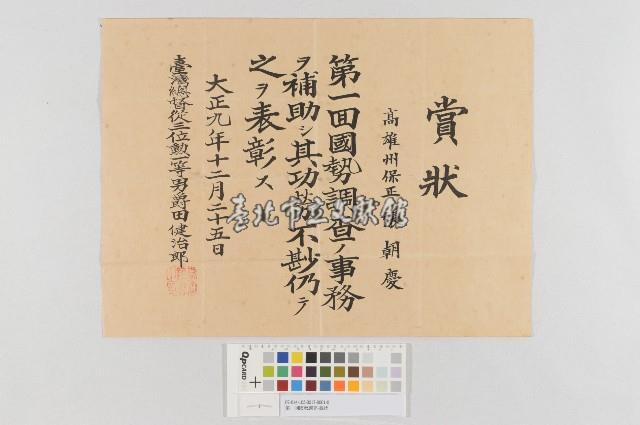 賞狀
高雄州保正 朝慶
第一回國勢調查ノ事務
ヲ補助シ其功勞不尠仍テ
之ヲ表彰ス
大正九年十二月二十五日
臺灣總督從三位勳一等男爵田健治郎
臺北市立文獻館
QPCARD